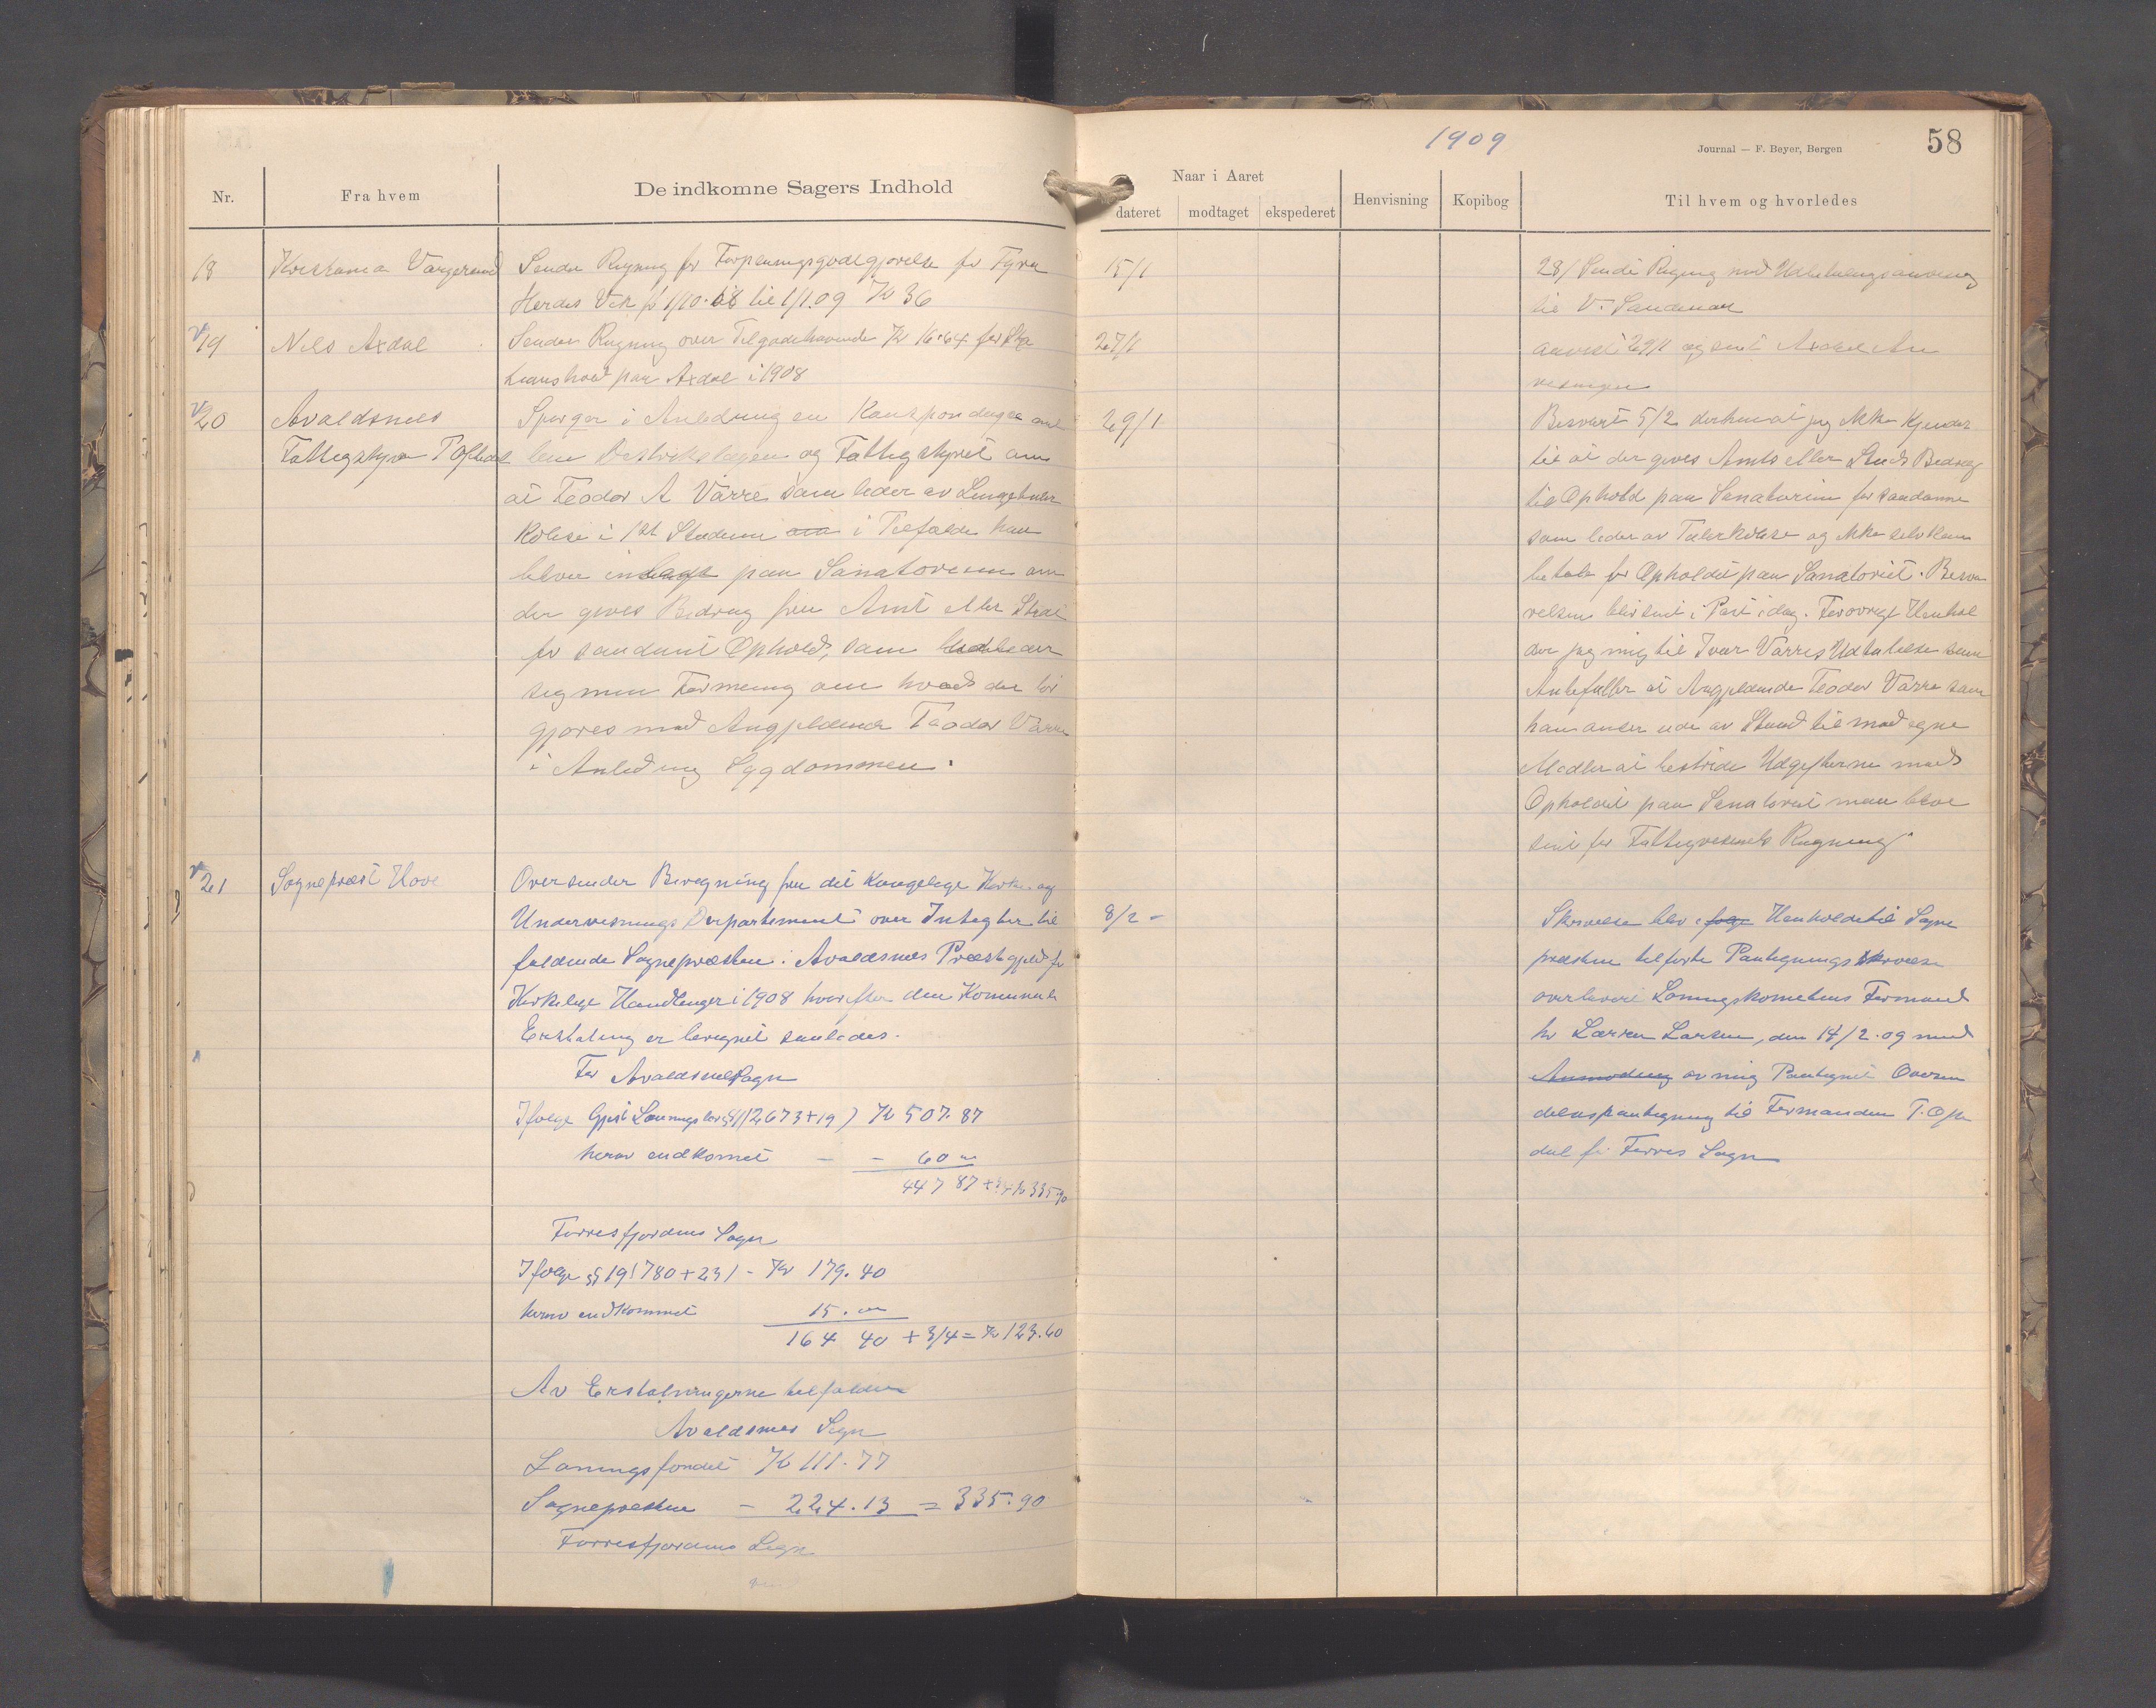 1909
Journal — F. Beyer, Bergen
58
Nr.
Fra hvem
De indkomne Sagers Indhold
Naar i Aaret
dateret
modtaget
ekspederet
Henvisning
Kopibog
Til hvem og hvorledes
18
Vargervaag
Sender Regning for Forpleiningsgodtgjørelse for
Herdis Vik fr 1/10.08 til 1/1.09 Kr 36
15/1
28/1 Sendt Regning med Udbetalingsanvisning
til V.
19
Nels Axdal
Sender Regning over Tilgodehavende Kr 16.64 for
paa Axdal i 1908
27/1
anvist 29/1 og sent Axdal An
visningen
20
Avaldsnes
Fattigstyre
Spørger i Anledning en
Distriktslægen og Fattigstyret om
at Teodor A Vårre som leder av Lungetuber
kolose i 1st Stadium i Tilfælde han
blever indlagt paa Sanatorium om
der gives Bedrag fra Amt eller Stat
for saadant Ophold, som
sig min Formening om hvad der bør
gjøres med Angjeldende Teodor Vårre
i Anledning Sygdommen.
29/1
Besvart 5/2 derhen at jeg ikke kjender
til at der gives Amts eller Stads Bedrag
til Ophold paa Sanatorium for saadanne
som leder av Tuberkolose og ikke selv kan
betale for Opholdet paa Sanatoriet. Besva
relsen blev sent i Post idag. Forøvrigt Henhol
der jeg mig til Ivar Vårres Udtalelse som
Anbefaller at Angjeldende Teodor Vårre som
han anser ude av Stand til med egne
Midler at bestride Udgifterne med
Opholdet paa Sanatoriet maa blive
sent for Fattigvesenets Regning
21
Sogneprest Hove
Oversender Beregning fra det Kongelige Kirke og
Undervisnings Departement over Indtegter til
faldende Sognepresten i Avaldsnes Prestegjeld for
Kirkelige Handlinger i 1908 hvorefter den Komunale
Erstatning er beregnet saaledes.
For Avaldsnes Sogn
Ifølge Gjeist Lønningslov § 11 (2673+19) Kr 507.87
herav indkomet — - 60 "
447 87 + 3/4 Kr 335.90
Førresfjordens Sogn
Ifølge § 19 (780+231 - Kr 179.40
herav indkommet 15. "
164 40 + 3/4 = Kr 123.60
Av Erstatningerne tilfalder
Avaldsnes Sogn
Lønningsfondet Kr 111.77
Sognepresten - 224.13 = 335.90
Førresfjordens Sogn
8/2 -
Skrivelse blev i følge Henholdt til Sogne
presten tilførte Pategnings skrivelse
overlevert Lønningskomiteens Formand
hr Larsen, den 14/2.09 med
Anmodning av mig Pategnet Oversen
delsespategning til Formanden T. Op
dal for Førres Sogn